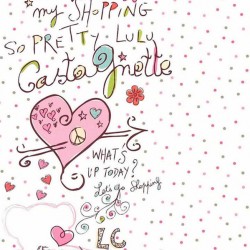 my SHOPPING
SO PRETTY LULU
Castagnette
WHAT'S
UP TODAY?
Let's go Shopping
LC